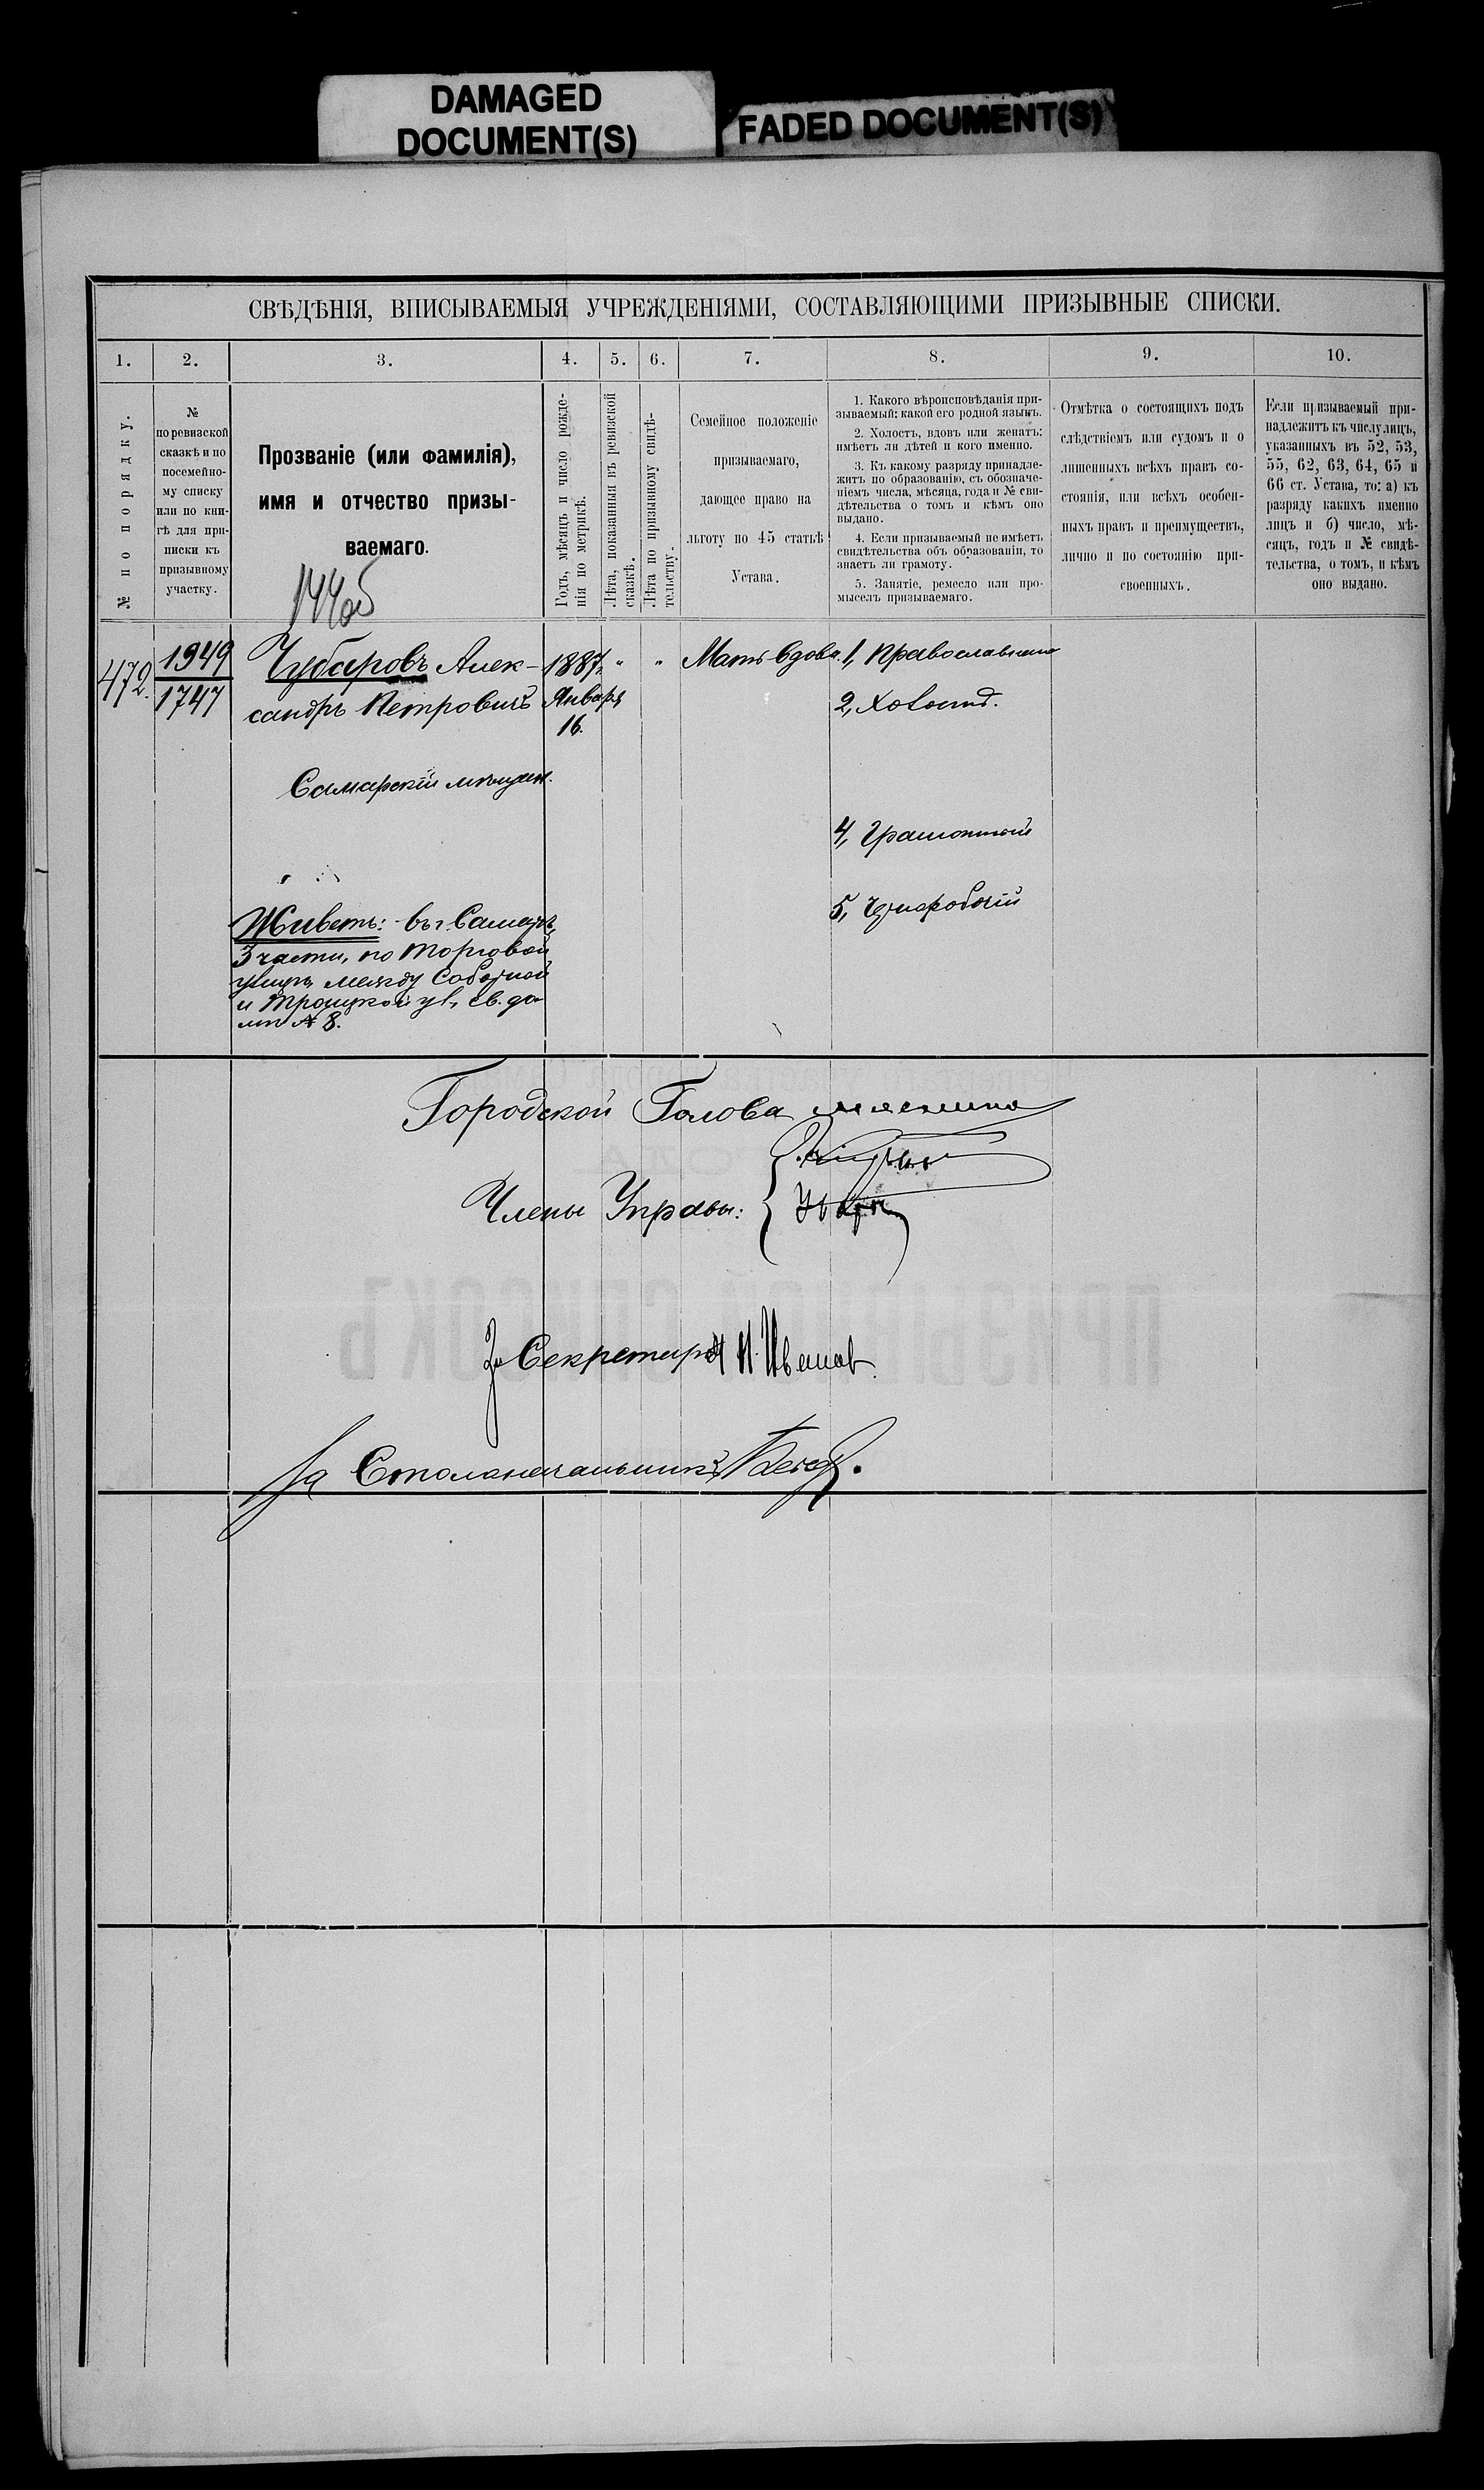 DAMAGED
DOCUMENT(S)
FADED DOCUMENT(S)
СВѢДѢНІЯ, ВПИСЫВАЕМЫЯ УЧРЕЖДЕНІЯМИ, СОСТАВЛЯЮЩИМИ ПРИЗЫВНЫЕ СПИСКИ.
1. 2. 3. 4. 5. 6. 7. 8. 9. 10.
№ по порядку.
№
по ревизской
сказкѣ и по
посемейно-
му списку
или по кни-
гѣ для при-
писки къ
призывному
участку.
Прозваніе (или фамилія),
имя и отчество призы-
ваемаго.
Годъ, мѣсяцъ и число рожде-
нія по метрикѣ.
Лѣта, показанныя въ ревизской
сказкѣ.
Лѣта по призывному свидѣ-
тельству.
Семейное положеніе
призываемаго,
дающее право на
льготу по 45 статьѣ
Устава.
1. Какого вѣроисповѣданія при-
зываемый: какой его родной языкъ.
2. Холостъ, вдовъ или женатъ:
имѣетъ ли дѣтей и кого именно.
3. Къ какому разряду принадле-
житъ по образованію, съ обозначе-
ніемъ числа, мѣсяца, года и № сви-
дѣтельства о томъ и кѣмъ оно
выдано.
4. Если призываемый не имѣетъ
свидѣтельства объ образованіи, то
знаетъ ли грамоту.
5. Занятіе, ремесло или про-
мыселъ призываемаго.
Отмѣтка о состоящихъ подъ
слѣдствіемъ или судомъ и о
лишенныхъ всѣхъ правъ со-
стоянія, или всѣхъ особен-
ныхъ правъ и преимуществъ,
лично и по состоянію при-
своенныхъ.
Если призываемый при-
надлежитъ къ числу лицъ,
указанныхъ въ 52, 53,
55, 62, 63, 64, 65 и
66 ст. Устава, то: а) къ
разряду какихъ именно
лицъ и б) число, мѣ-
сяцъ, годъ и № свидѣ-
тельства, о томъ, и кѣмъ
оно выдано.
472.
1949
1747
Чубаровъ Алек-
сандръ Петровичъ
Самарскій мѣщан.
Живетъ: въ г. Самарѣ,
3 части, по Торговой
улицѣ, между Соборной
и Троицкой ул., св. до-
мъ № 8.
1887,
Января
16.
" "
Мать вдова.
1, Православнаго
2, Холостъ.
4, Грамотный
5, Чернорабочій
Городской Голова
Члены Управы:
За Секретаря
За Столоначальника